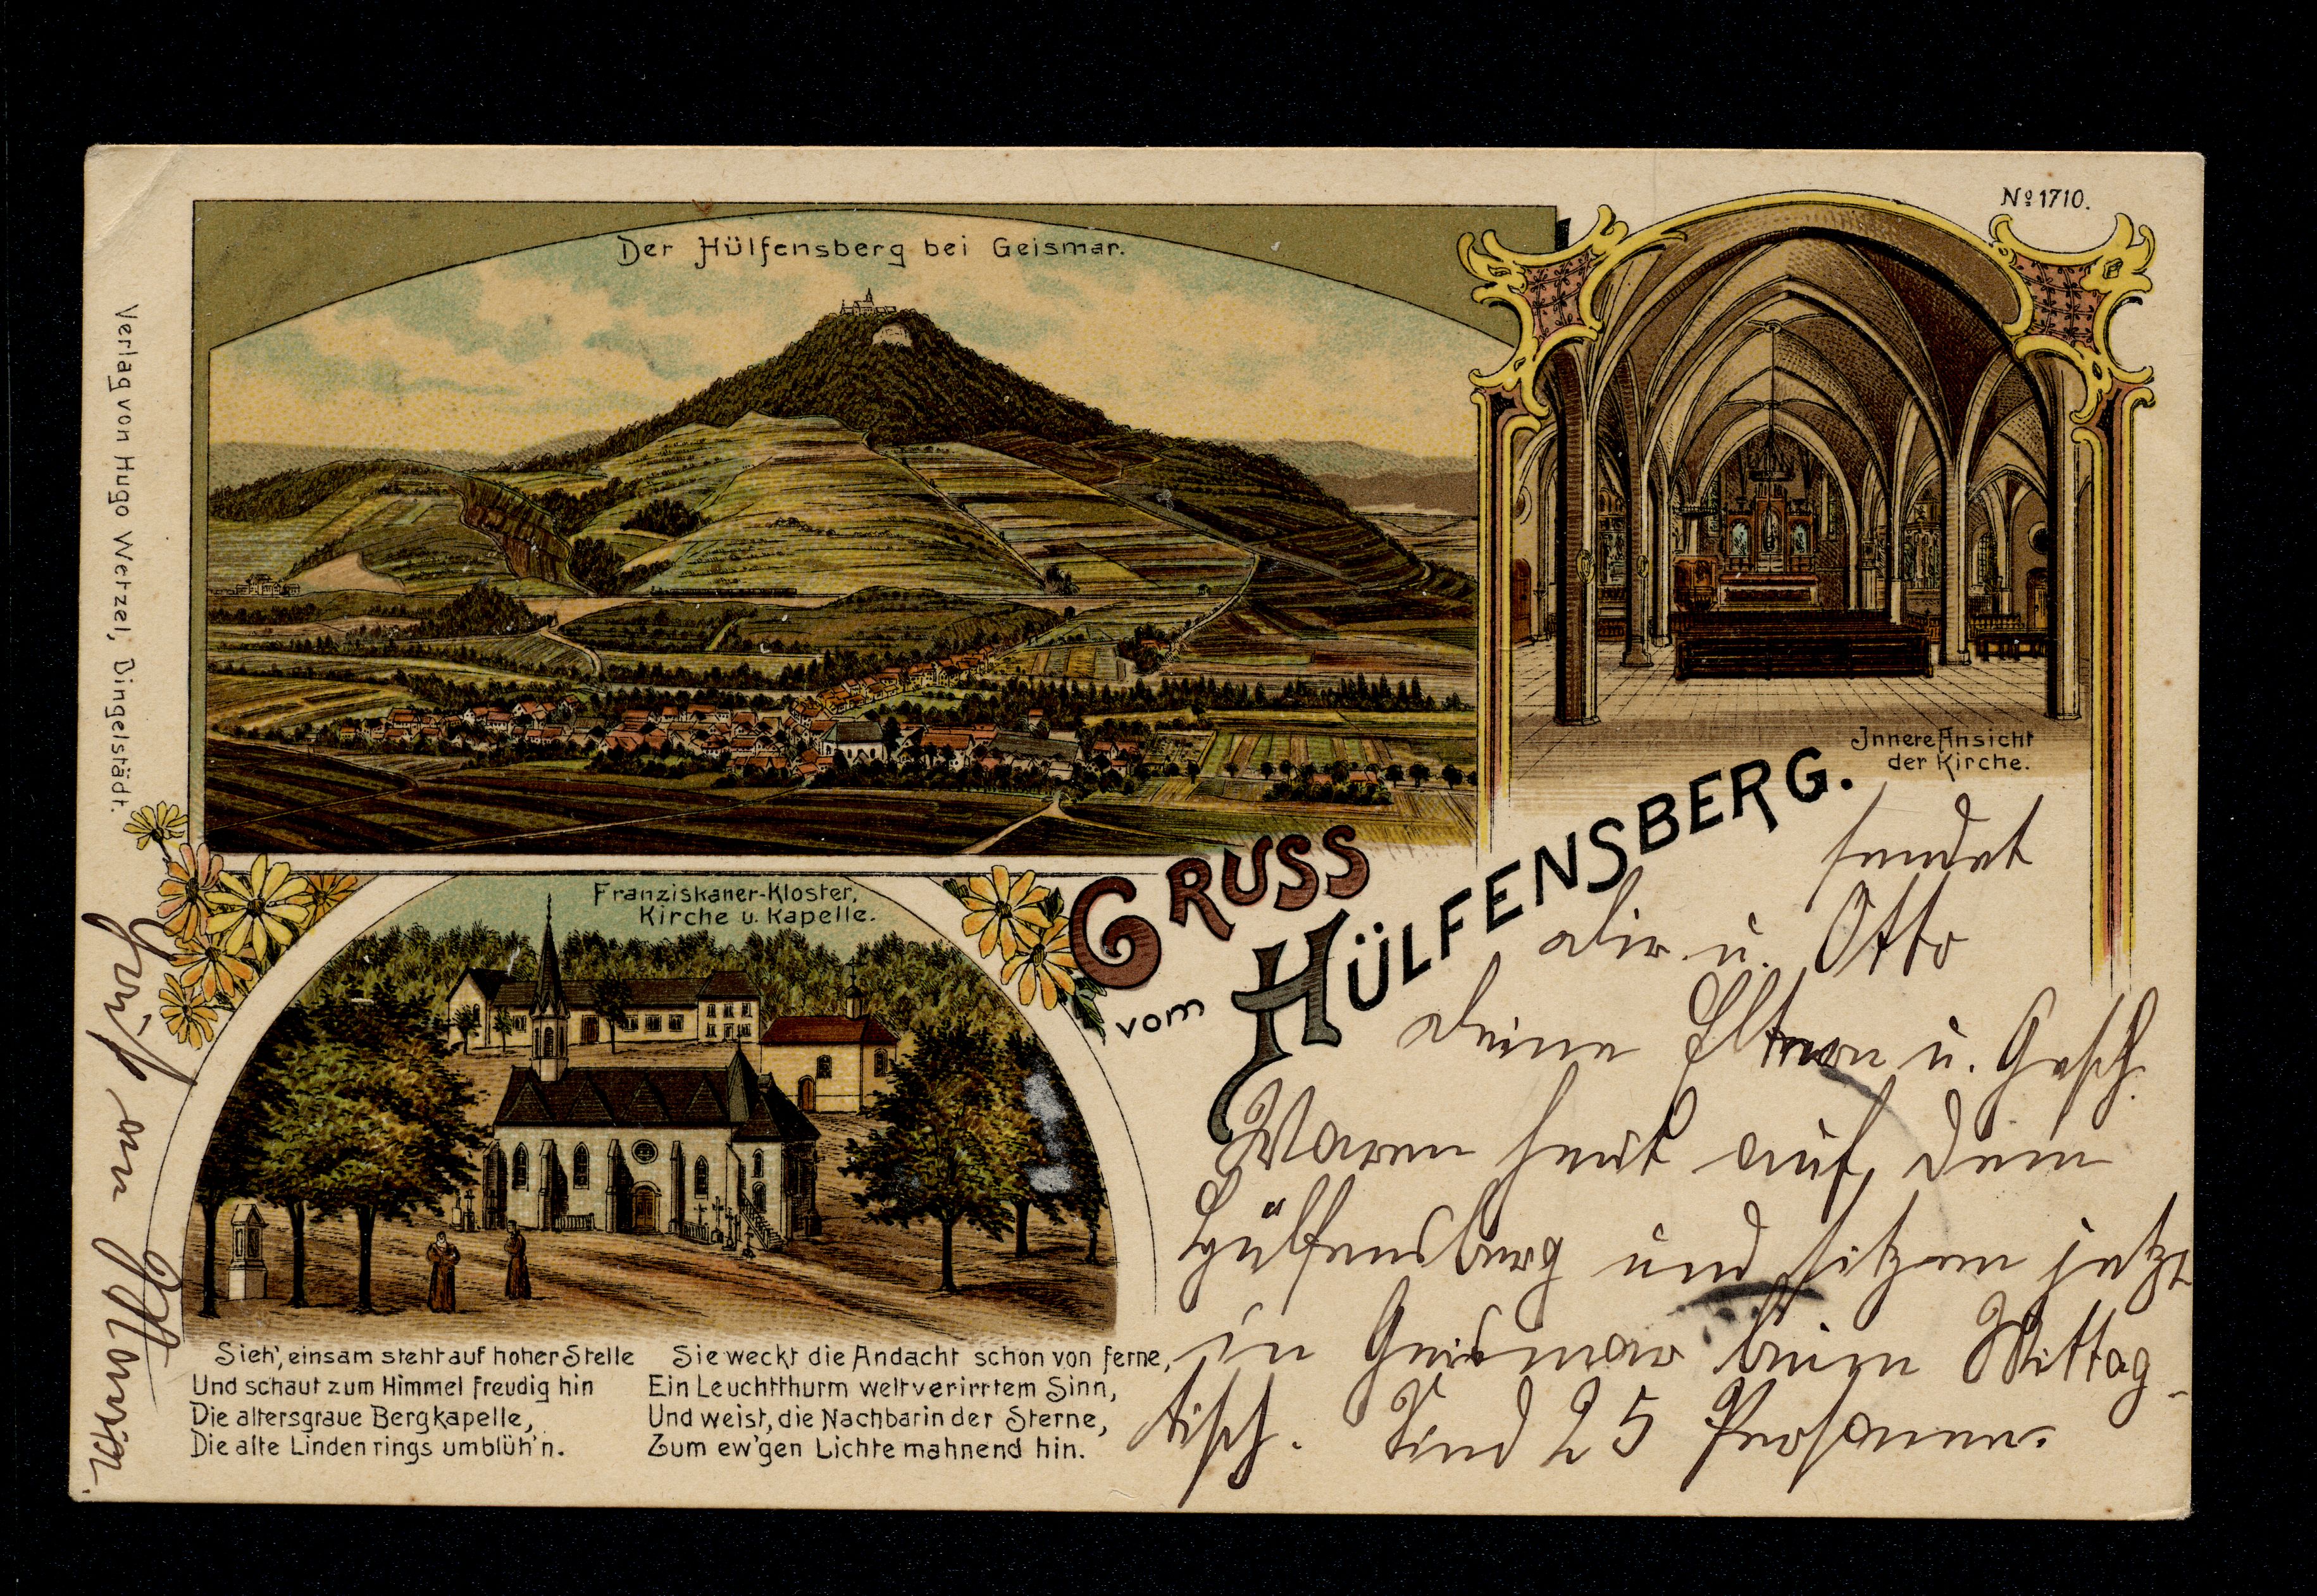 Nº 1710.
Der Hülfensberg bei Geismar.
Innere Ansicht
der Kirche.
Verlag von Hugo Wetzel, Dingelstädt.
Franziskaner-Kloster,
Kirche u. Kapelle.
GRUSS
vom HÜLFENSBERG.
sendet
dir u. Otto
deine Eltern u. Gesch.
Waren heut auf dem
Hülfensberg und sitzen jetzt
in Geismar beim Mittag-
tisch. Sind 25 Personen.
Sieh', einsam steht auf hoher Stelle
Und schaut zum Himmel freudig hin
Die altersgraue Bergkapelle,
Die alte Linden rings umblüh'n.
Sie weckt die Andacht schon von ferne,
Ein Leuchtthurm weltverirrtem Sinn,
Und weist, die Nachbarin der Sterne,
Zum ew'gen Lichte mahnend hin.
Gruß an